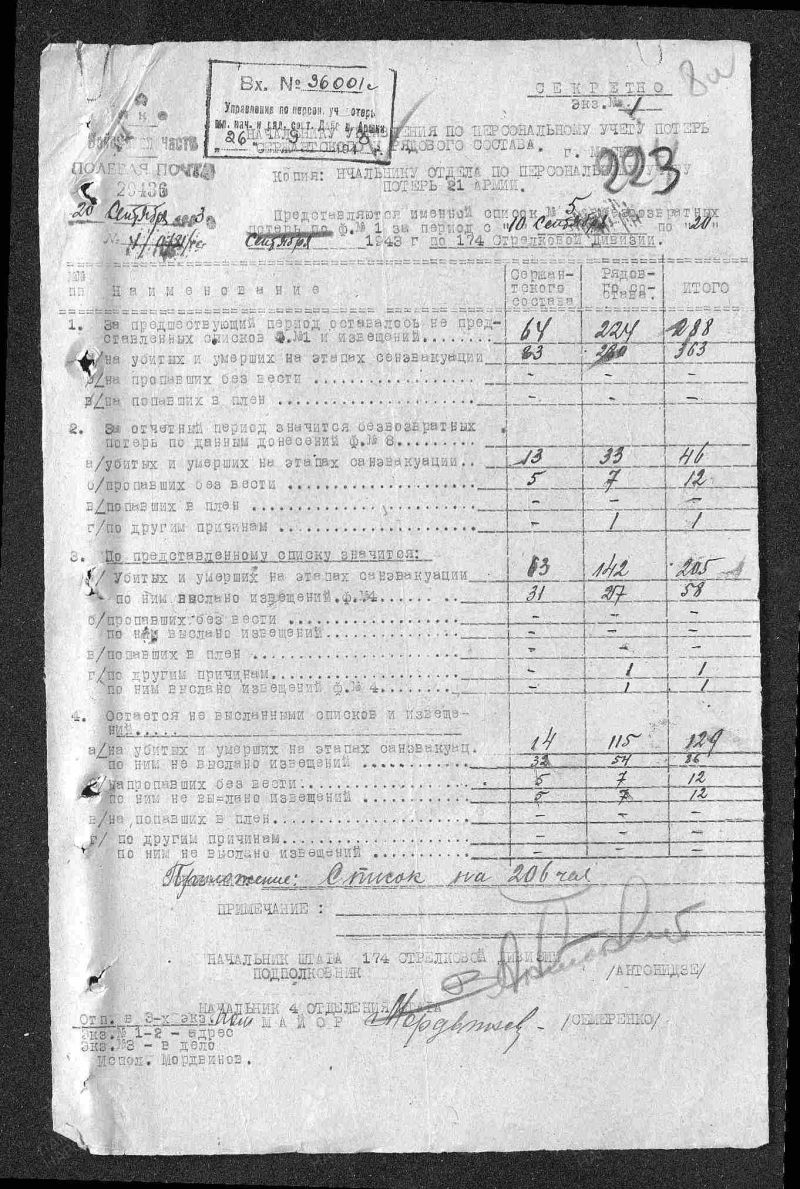 Вх. № 36001с
Управления по персон. уч. потерь
"26" 9 1943 г.
СЕКРЕТНО
Экз. № 1
8
НАЧАЛЬНИКУ УПРАВЛЕНИЯ ПО ПЕРСОНАЛЬНОМУ УЧЕТУ ПОТЕРЬ
СЕРЖАНТСКОГО РЯДОВОГО СОСТАВА.
часть
ПОЛЕВАЯ ПОЧТА
29436
223
Копия: НЧАЛЬНИКУ ОТДЕЛА ПО ПЕРСОНАЛЬНОМУ УЧЕТУ
ПОТЕРЬ 21 АРМИИ.
20 Сентября 3
Представляются именной список № 5 безвозвратных
потерь по ф.№ 1 за период с "10 Сентября по "20"
Сентября 1943 г по 174 Стрелковой Дивизии.
№№ пп Наименование Сержантского состава Рядового состава. ИТОГО
1. За предшествующий период оставалось не пред-
ставленных списков Ф.№1 и извещений........ 64 224 288
а/на убитых и умерших на этапах санэвакуации 83 280 363
б/на пропавших без вести ................ - - -
в/на попавших в плен .................... - - -
2. За отчетный период значится безвозвратных
потерь по данным донесений ф.№ 8.........
а/убитых и умерших на этапах санэвакуации.. 13 33 46
б/пропавших без вести ................... 5 7 12
в/попавших в плен ....................... - - -
г/по другим причинам .................... - 1 1
3. По представленному списку значится:
а/ Убитых и умерших на этапах санэвакуации 63 142 205
по ним выслано извещений ф.№4......... 31 27 58
б/пропавших без вести ................... - - -
по ним выслано извещений............... - - -
в/попавших в плен ....................... - - -
г/по другим причинам..................... - 1 1
по ним выслано извещений ф.№ 4......... - 1 1
4. Остается не высланными списков и извеще-
ний.....
а/на убитых и умерших на этапах санэвакуац. 14 115 129
по ним не выслано извещений ........... 32 54 86
б/напропавших без вести.................. 5 7 12
по ним не вы=лано извещений ........... 5 7 12
в/на попавших в плен..................... - - -
г/ по другим причинам.................... - - -
по ним не выслано извещений .......... - - -
Приложение: Список на 206 чел
ПРИМЕЧАНИЕ :
НАЧАЛЬНИК ШТАБА 174 СТРЕЛКОВОЙ ДИВИЗИИ
ПОДПОЛКОВНИК /АНТОНИДЗЕ/
НАЧАЛЬНИК 4 ОТДЕЛЕНИЯ ШТАБА
МАЙОР /СЕМЕРЕНКО/
Отп. в 3-х экз.
Экз.№ 1-2 - адрес
Экз.№3 - в дело
Испол. Мордвинов.